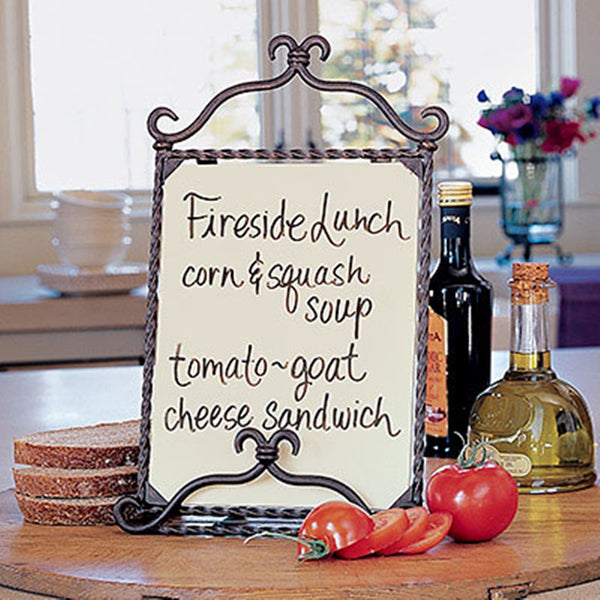 Fireside Lunch
corn & squash
soup
tomato~goat
cheese sandwich